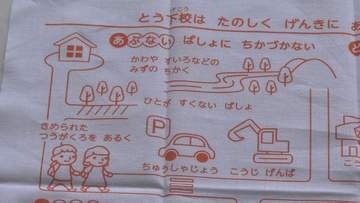 とう下校は たのしく げんきに あ
げこう
あぶない ばしょに ちかづかない
かわや すいろなどの
みずの ちかく
ひとが すくない ばしょ
きめられた
つうがくろを あるく
P
ちゅうしゃじょう
こうじ げんば